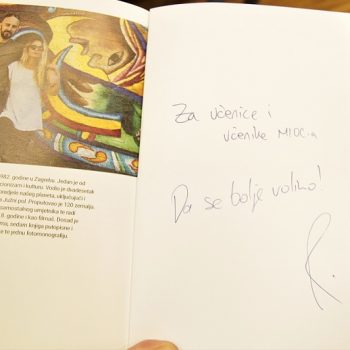 1982. godine u Zagrebu. Jedan je od
i kulturu. Vodio je dvadesetak
našeg planeta, uključujući i
Južni pol. Proputovao je 120 zemalja.
samostalnog umjetnika te radi
8. godine i kao filmaš. Dosad je
sedam knjiga putopisne i
te jednu fotomonografiju.
Za učenice i
učenike MIOC-a
Da se bolje volimo!